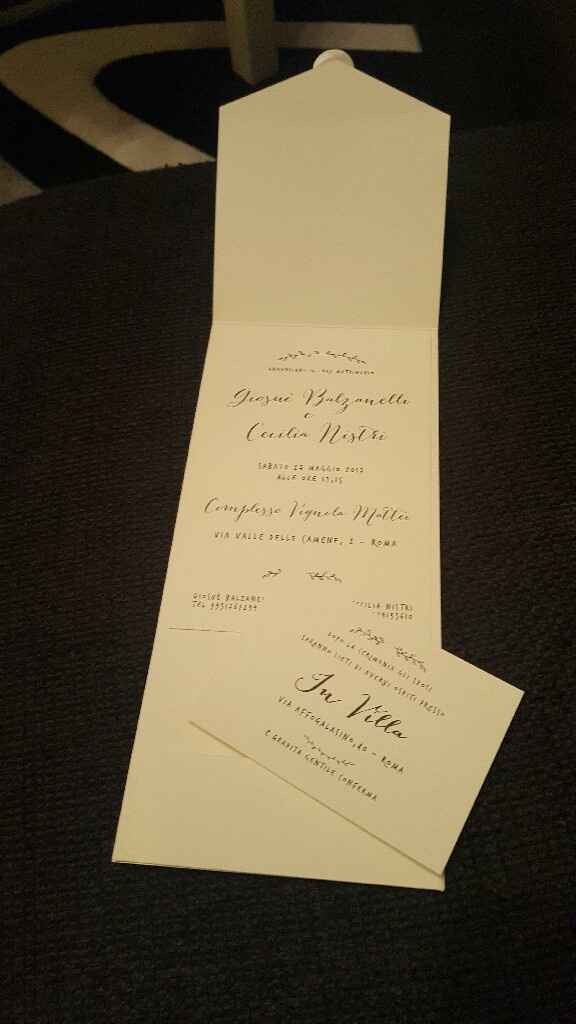 ANNUNCIANO IL LORO MATRIMONIO
Giosuè Balzanelli
e
Cecilia Nistri
SABATO 27 MAGGIO 2017
ALLE ORE
Complesso Vignola Mattei
VIA VALLE DELLE CAMENE, 2 - ROMA
GIOSUÈ BALZANEL
TEL
CECILIA NISTRI
DOPO LA CERIMONIA GLI SPOSI
SARANNO LIETI DI AVERVI OSPITI PRESSO
In Villa
VIA AFFOGALASINO, 40 - ROMA
È GRADITA GENTILE CONFERMA